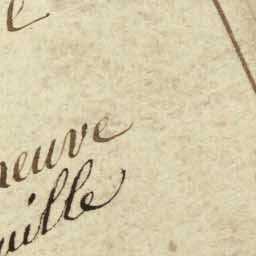 neuve
uille